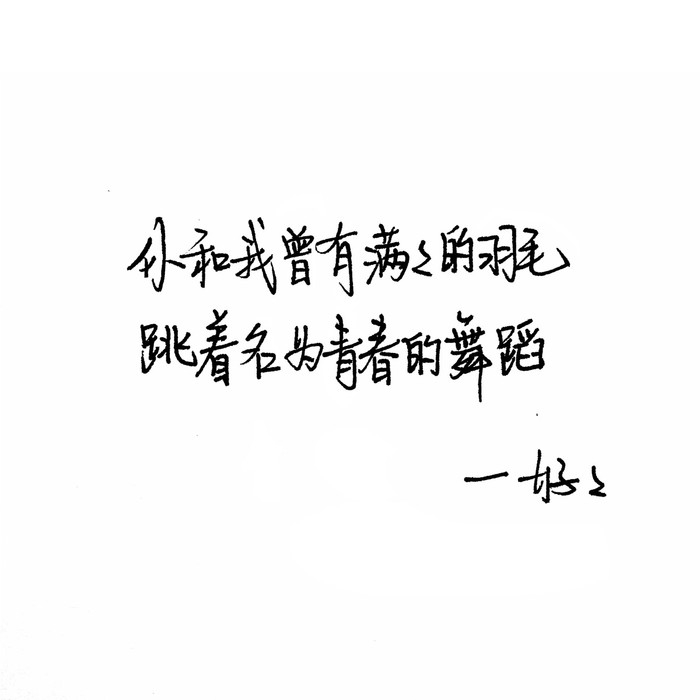 你和我曾有满々的羽毛
跳着名为青春的舞蹈
一好々